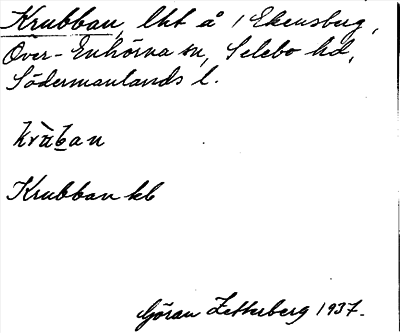 Krubban, lht å / Ekensberg,
Över-Enhörna sn, Selebo hd,
Södermanlands l.
krùban
Krubban kb
Göran Zetterberg 1937.